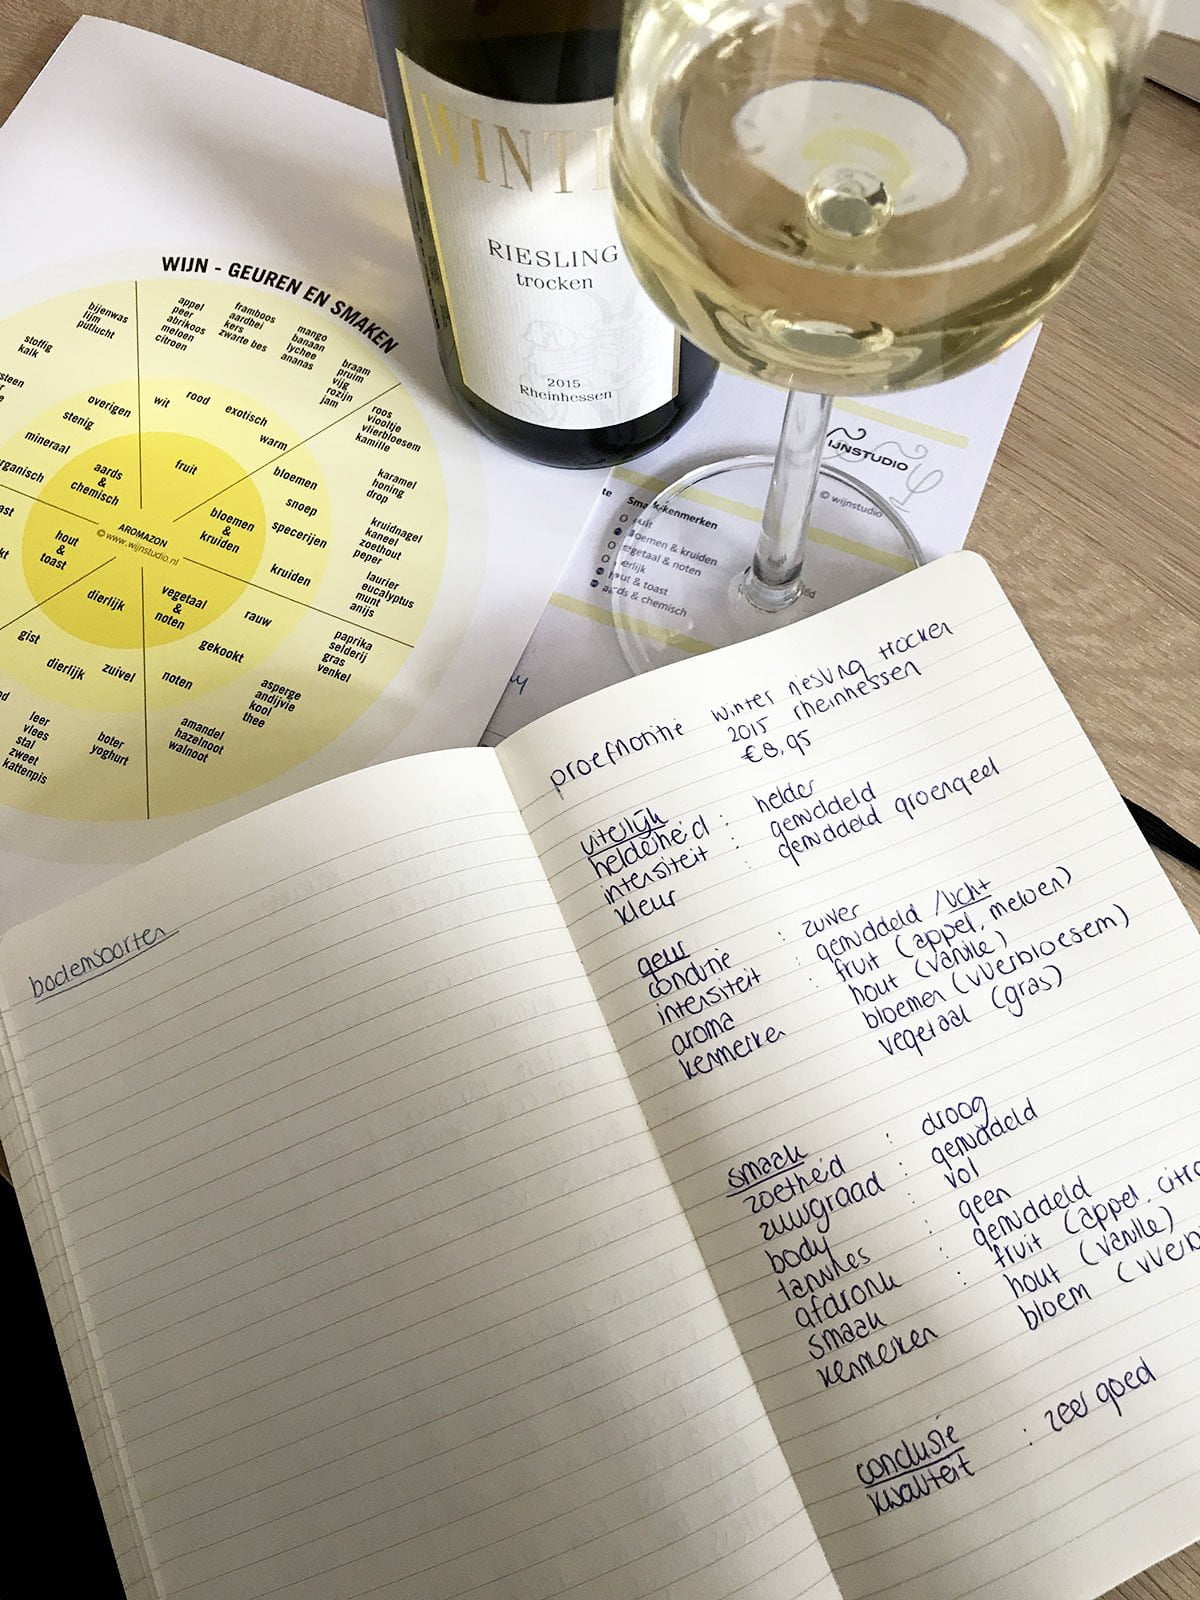 WINT
RIESLING
trocken
2015
Rheinhessen
WIJN - GEUREN EN SMAKEN
bijenwas
lijm
putlucht
appel
peer
abrikoos
meloen
citroen
framboos
aardbei
kers
zwarte bes
mango
banaan
lychee
ananas
braam
pruim
vijg
rozijn
jam
stoffig
kalk
roos
viooltje
vlierbloesem
kamille
karamel
honing
drop
kruidnagel
kaneel
zoethout
peper
laurier
eucalyptus
munt
anijs
paprika
selderij
gras
venkel
asperge
andijvie
kool
thee
amandel
hazelnoot
walnoot
boter
yoghurt
leer
vlees
stal
zweet
kattenpis
overigen
stenig
mineraal
wit
rood
exotisch
warm
bloemen
snoep
specerijen
kruiden
rauw
gekookt
noten
zuivel
dierlijk
gist
aards
&
chemisch
fruit
bloemen
&
kruiden
vegetaal
&
noten
dierlijk
hout
&
toast
AROMAZON
© www.wijnstudio.nl
IJNSTUDIO
© wijnstudio
& kruiden
& noten
& toast
& chemisch
bodemsoorten
proefnotitie winter riesling trocken
2015 rheinhessen
€8,95
uiterlijk
helderheid : helder
intensiteit : gemiddeld
kleur : gemiddeld groengeel
geur
conditie : zuiver
intensiteit : gemiddeld / licht
aroma : fruit (appel, meloen)
kenmerken hout (vanille)
bloemen (vlierbloesem)
vegetaal (gras)
smaak
zoetheid : droog
zuurgraad : gemiddeld
body : vol
tannines : geen
afdronk : gemiddeld
smaak : fruit (appel, citro
kenmerken hout (vanille)
bloem (vlierbl
conclusie
kwaliteit : zeer goed